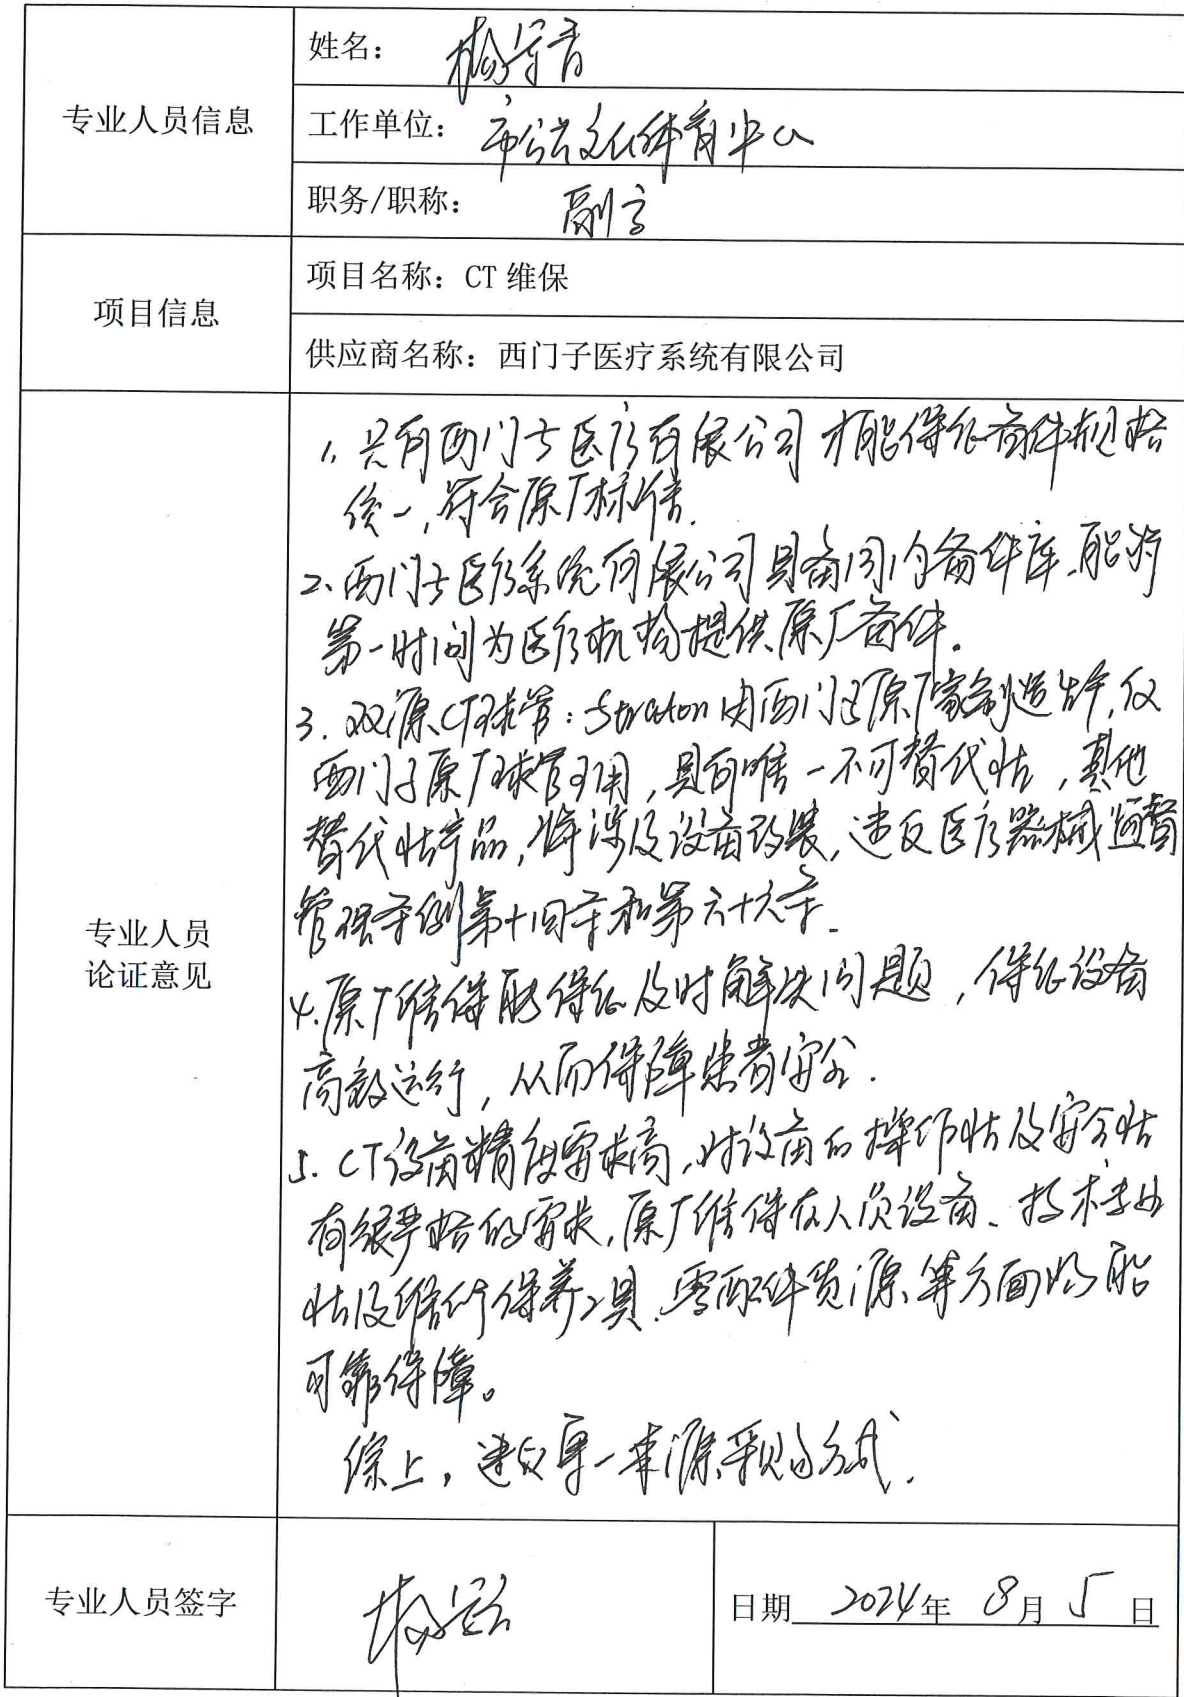 专业人员信息
姓名：
工作单位：市公共文化体育中心
职务/职称：副高
项目信息
项目名称：CT 维保
供应商名称：西门子医疗系统有限公司
专业人员
论证意见
1、只有西门子医疗有限公司才能保证备件规格
统一，符合原厂标准.
2、西门子医疗系统有限公司具备国内备件库，能够
第一时间为医疗机构提供原厂备件。
3. 双源CT球管：Straton由西门子原厂家制造生产，仅
西门子原厂球管可用，具有唯一不可替代性，其他
替代性产品，将涉及设备改装，违反医疗器械监督
管理条例第十四条和第六十六条.
4、原厂维保能保证及时解决问题，保证设备
高效运行，从而保障患者安全.
5. CT设备精度要求高，对设备的操作性及安全性
有很严格的要求，原厂维保在人员设备、技术专业
性及维修保养工具、零配件货源等方面均能
可靠保障。
综上，建议单一来源采购方式.
专业人员签字
日期 2024年 8月 5日